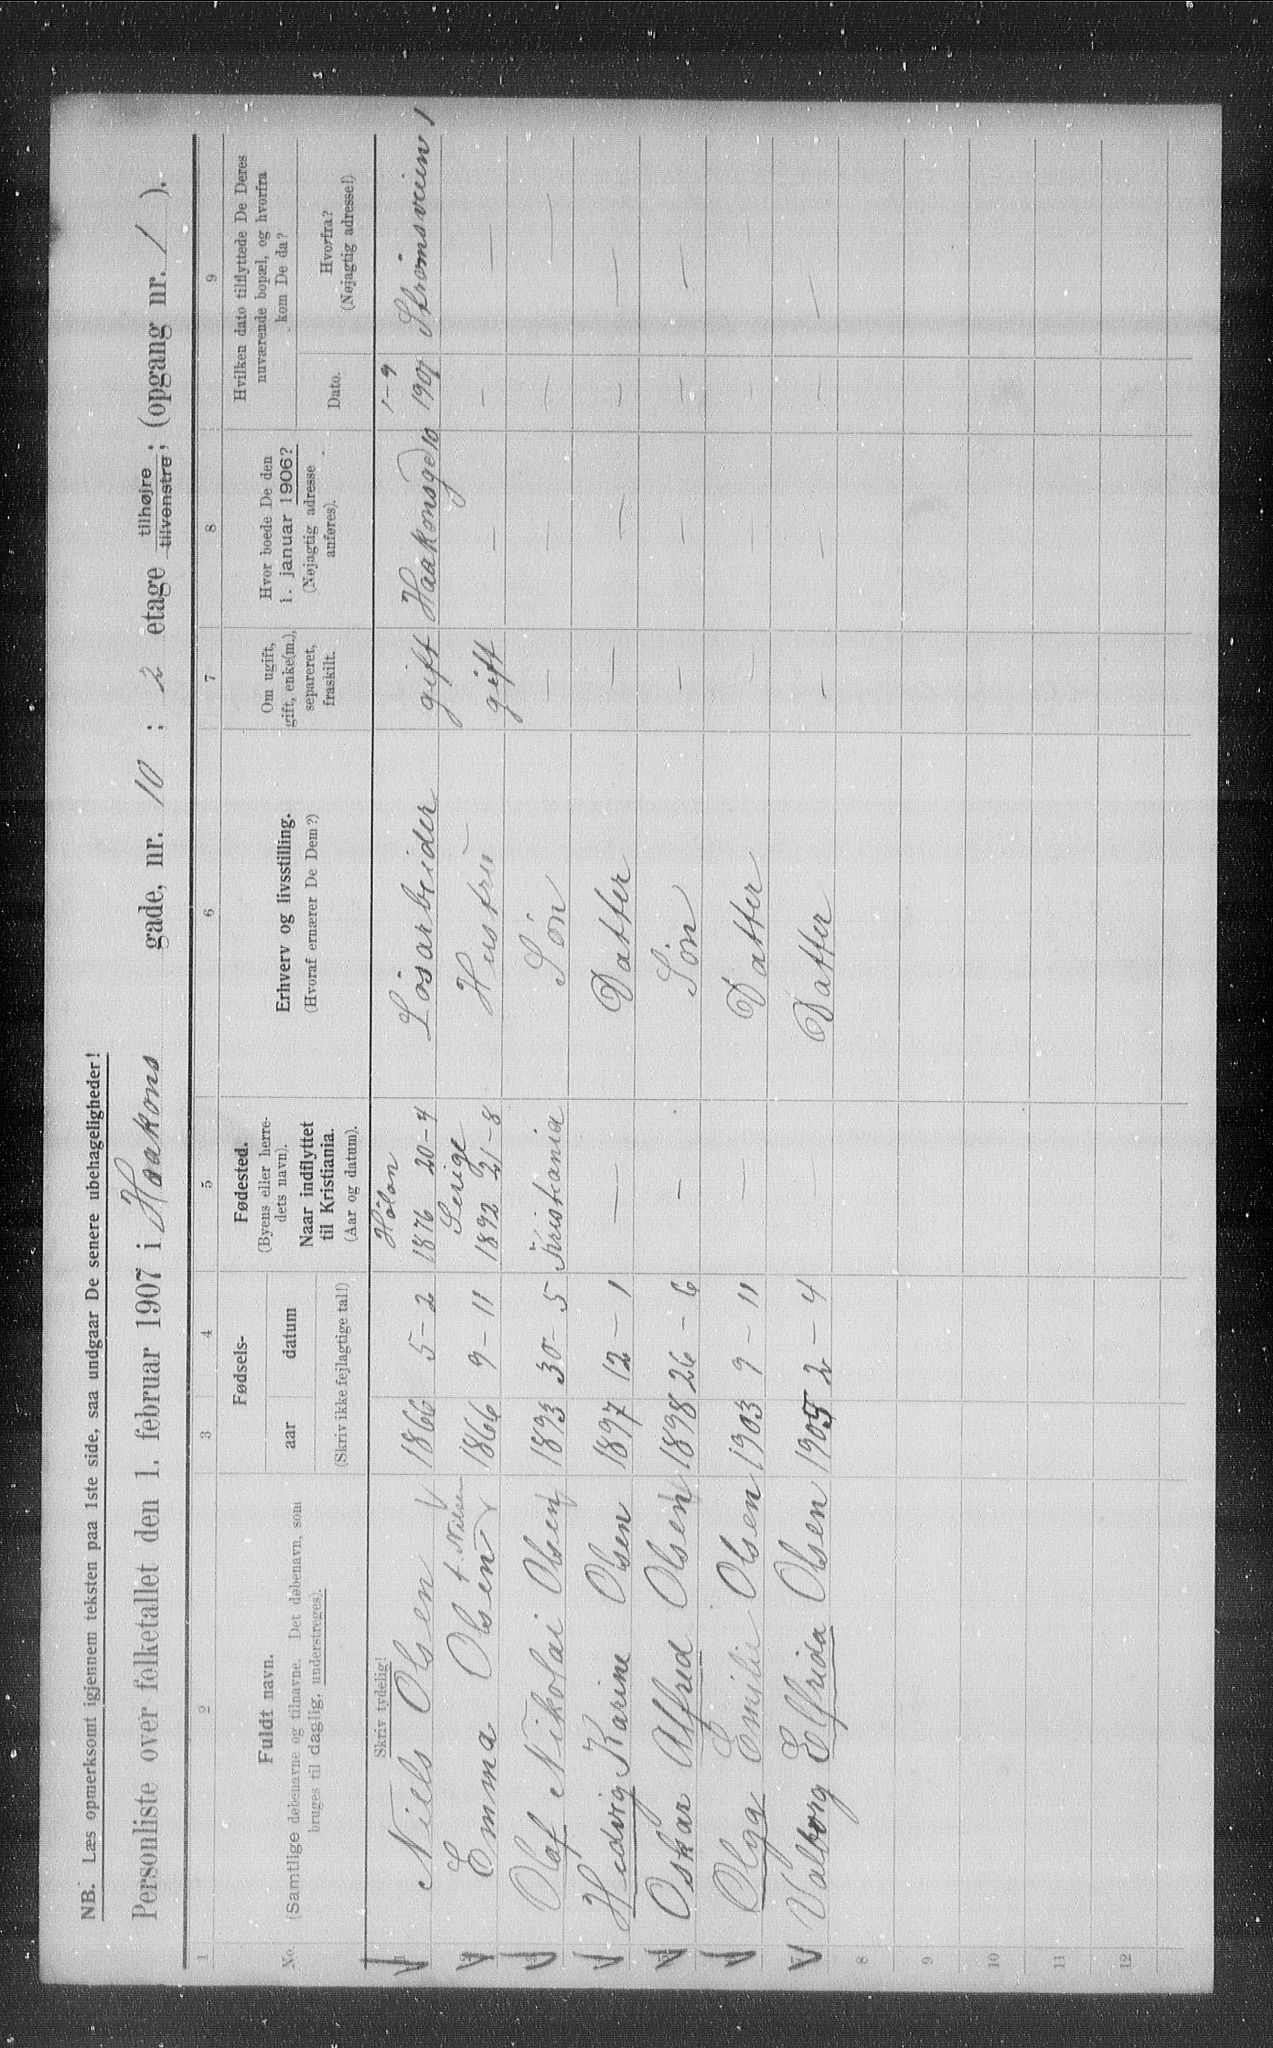 NB. Læs opmerksomt igjennem teksten paa 1ste side, saa undgaar De senere ubehageligheder!
Personliste over folketallet den 1. februar 1907 i Haakons gade, nr. 10 ; 2 etage tilhøjre tilvenstre; (opgang nr. 1 ).
1 2 3 4 5 6 7 8 9
No.
Fuldt navn.
(Samtlige døbenavne og tilnavne. Det døbenavn, som
bruges til daglig, understreges).
Fødsels-
aar datum
(Skriv ikke fejlagtige tal!)
Fødested.
(Byens eller herre-
dets navn).
Naar indflyttet
til Kristiania.
(Aar og datum).
Erhverv og livsstilling.
(Hvoraf ernærer De Dem?)
Om ugift,
gift, enke(m.),
separeret,
fraskilt.
Hvor boede De den
1. januar 1906?
(Nøjagtig adresse
anføres).
Hvilken dato tilflyttede De Deres
nuværende bopæl, og hvorfra
kom De da?
Dato.
Hvorfra?
(Nøjagtig adresse!)
Skriv tydelig!
Hölan 1-9
1 Niels Olsen 1866 5-2 1876 20-4 Lösarbeider gift Haakonsgd 10 1901 Strömsveien 1
f. Nilsen Serige
2 Emma Olsen 1866 9-11 1892 21-8 Hustru gift — — —
3 Olaf Nikolai Olsen 1893 30-5 Kristiania Sön — — — —
4 Hedvig Karine Olsen 1897 12-1 — Datter — — — —
5 Oskar Alfred Olsen 1898 26-6 — Sön — — — —
6 Olga Emilie Olsen 1903 9-11 — Datter — —
7 Valborg Elfrida Olsen 1905 2-4 Datter — — — —
8
9
10
11
12